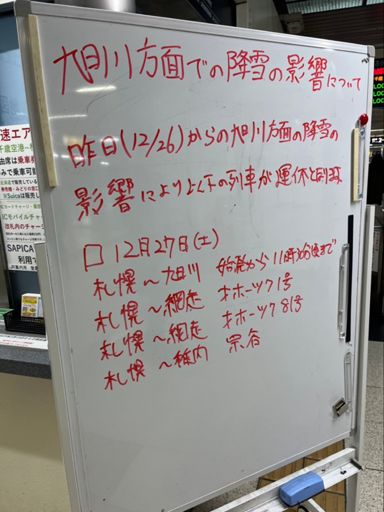 旭川方面での降雪の影響について
昨日(12/26)からの旭川方面の降雪の
影響により以下の列車が運休と
口12月27日(土)
札幌～旭川 始発から11時
札幌～網走 オホーツク1号
札幌～網走 オホーツク81号
札幌～稚内 宗谷
速エア
千歳空港
由席は乗車
みで乗車可能
ICモバイルチャージ
改札内のチャージ
SAPICA
利用